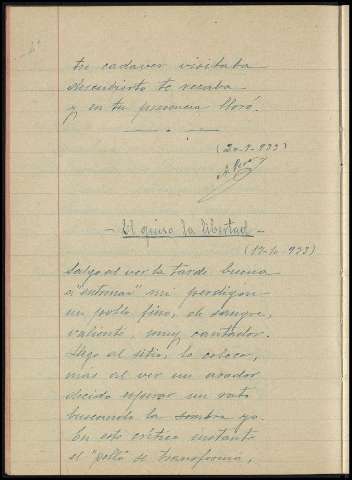 tu cadaver visitaba
descubierto te rezaba
y en tu presencia lloré.
(20-9-933)
- El quiso la libertad -
(17-10-933)
Salgo al ver la tarde buena
a "entrenar" mi perdigón
un pollo fino, de sangre,
valiente, muy cantador.
Llego al sitio, lo coloco,
mas al ver un
decido esperar un rato
buscando la sombra yo.
En este crítico instante
el "pollo" se transforma,